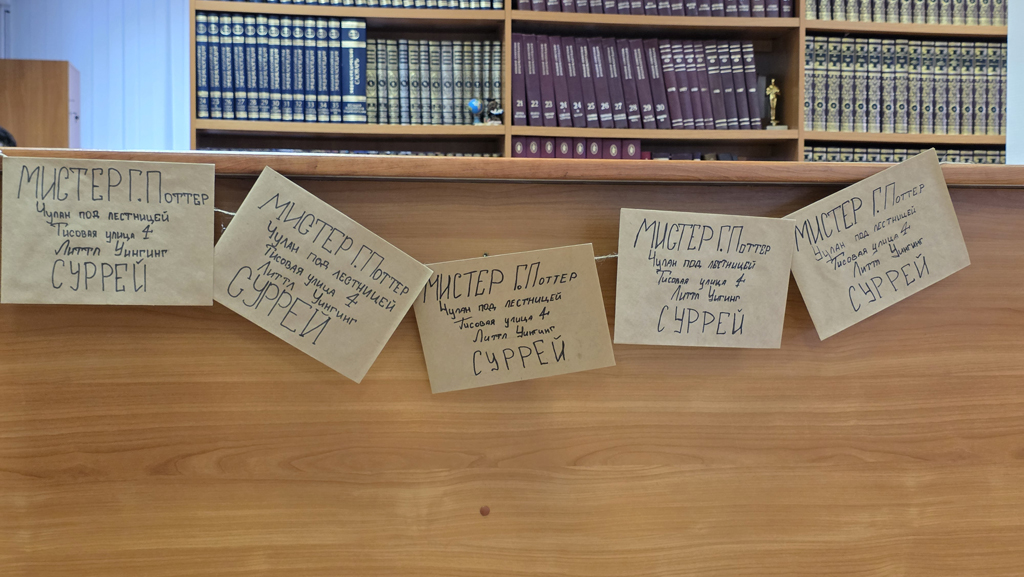 21 22 23 24 24 25 26 27 28 29 30
МИСТЕР Г.ПОТТЕР
Чулан под лестницей
Тисовая улица 4
Литтл Уингинг
СУРРЕЙ
МИСТЕР Г.ПОТТЕР
Чулан под лестницей
Тисовая улица 4
Литтл Уингинг
СУРРЕЙ
МИСТЕР Г.ПОТТЕР
Чулан под лестницей
Тисовая улица 4
Литтл Уингинг
СУРРЕЙ
МИСТЕР Г.ПОТТЕР
Чулан под лестницей
Тисовая улица 4
Литтл Уингинг
СУРРЕЙ
МИСТЕР Г.ПОТТЕР
Чулан под лестницей
Тисовая улица 4
Литтл Уингинг
СУРРЕЙ